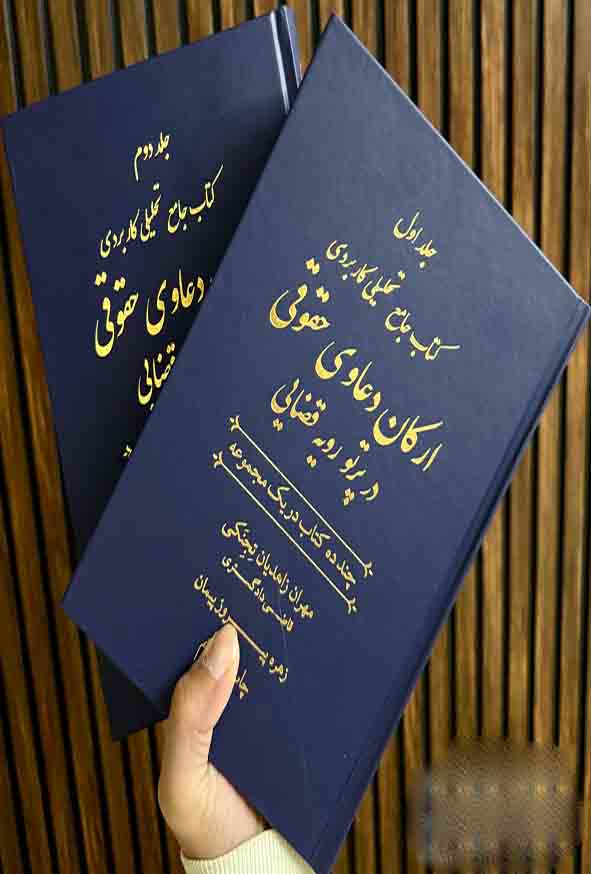 جلد دوم
کتاب جامع تحلیلی کاربردی
دعاوی حقوقی
قضایی
جلد اول
کتاب جامع تحلیلی کاربردی
ارکان دعاوی حقوقی
در پرتو رویه قضایی
چند ده کتاب در یک مجموعه
مهران زاهدیان تجنکی
قاضی دادگستری
زهره پیروز پیمان